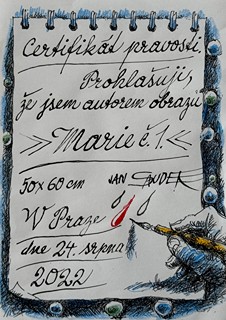 Certifikát pravosti.
Prohlašuji,
že jsem autorem obrazu
»Marie č. 1.«
50 x 60 cm JAN SAUDEK
V Praze
dne 24. srpna
2022